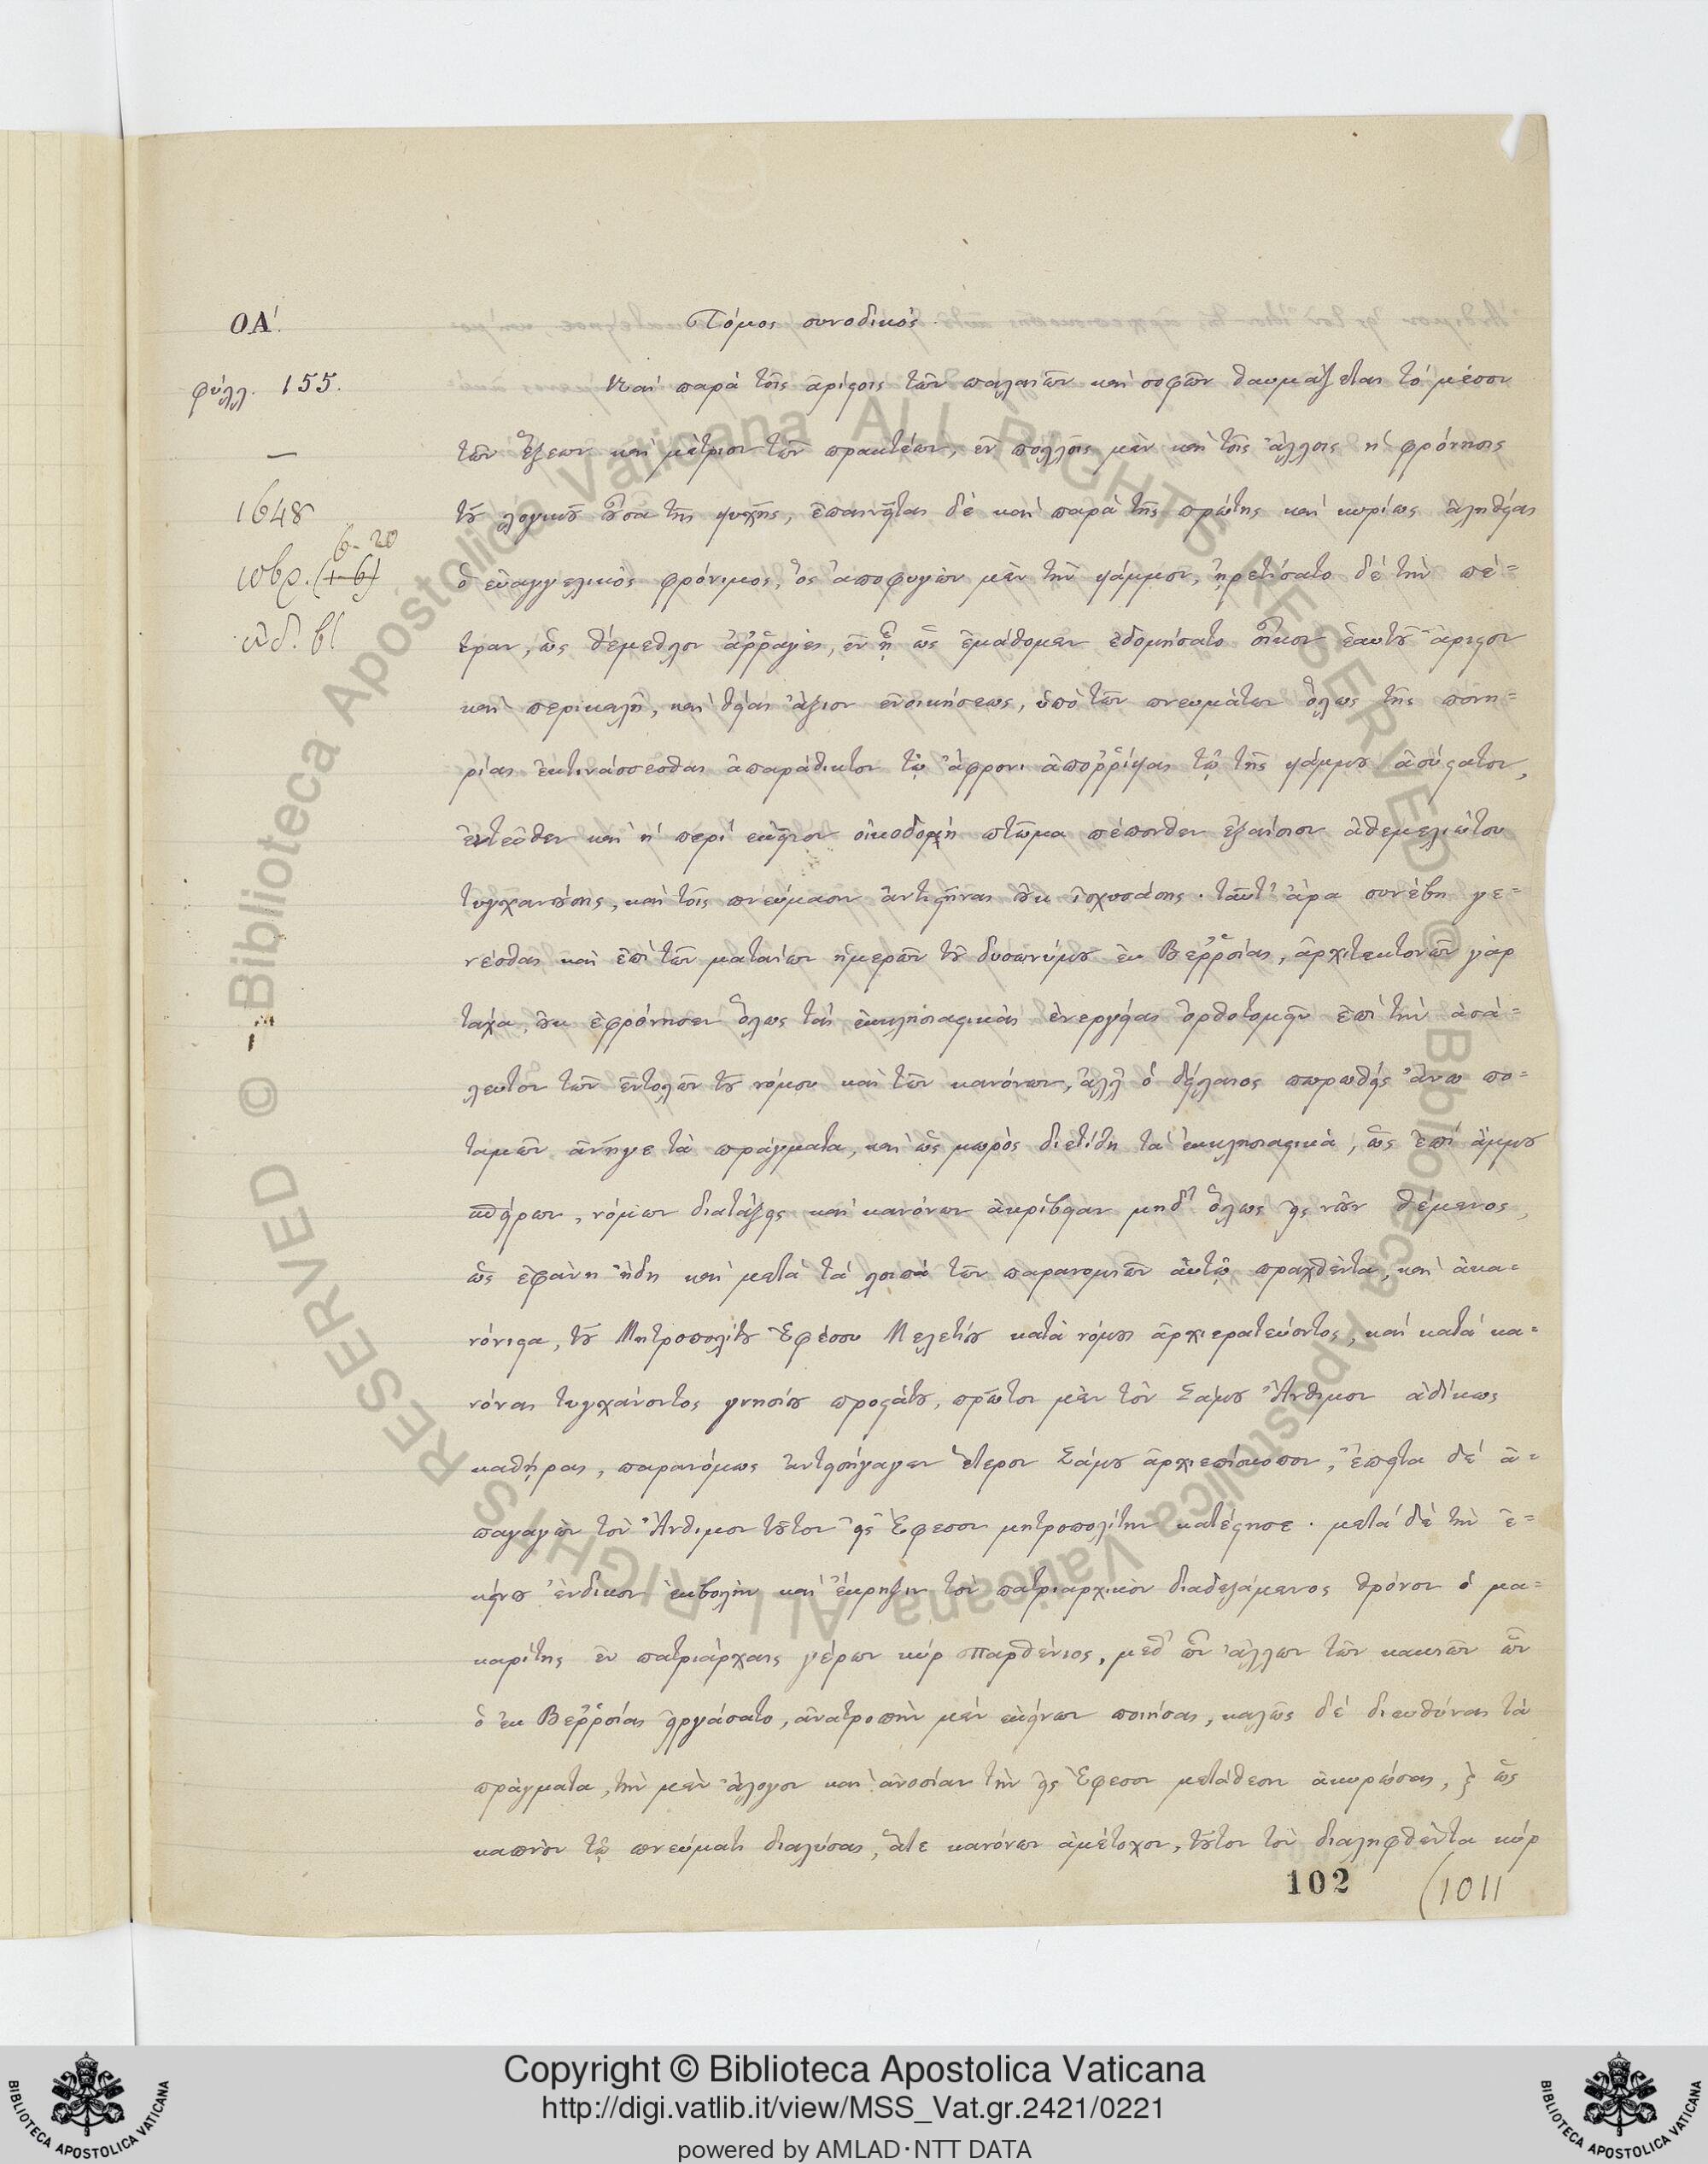 ΟΑ΄.
Τόμος συνοδικός.
φύλλ. 155.
Καὶ παρὰ τοῖς ἀρίστοις τῶν παλαιῶν καὶ σοφῶν θαυμάζεται τὸ μέσον
τῶν ἕξεων καὶ μέτριον τῶν πρακτέων, ἐν πολλοῖς μὲν καὶ τοῖς ἄλλοις ἡ φρόνησις
1648
τοῦ λογικοῦ οὖσα τῆς ψυχῆς, ἐπαινεῖται δὲ καὶ παρὰ τῆς πρώτης καὶ κυρίως ἀληθείας
6-20
ὁ εὐαγγελικὸς φρόνιμος, ὃς ἀποφυγὼν μὲν τὴν ψάμμον, ᾑρετίσατο δὲ τὴν πέ=
τραν, ὡς θέμεθλον ἀῤῥαγὲς, ἐν ᾗ ὡς ἐμάθομεν ἐδομήσατο οἶκον ἑαυτοῦ ἄριστον
καὶ περικαλῆ, καὶ θείας ἄξιον ἐνοικήσεως, ὑπὸ τῶν πνευμάτων ὅλως τῆς πονη=
ρίας ἐκτινάσσεσθαι ἀπαράδεκτον τῷ ἄφρονι ἀποῤῥίψας τῷ τῆς ψάμμου ἀσύστατον,
ἐντεῦθεν καὶ ἡ περὶ ἐκεῖνον οἰκοδομὴ πτῶμα πέπονθεν ἐξαίσιον ἀθεμελιώτου
τυγχανούσης, καὶ τοῖς πνεύμασιν ἀντιστῆναι οὐκ ἰσχυσάσης. ταῦτ' ἄρα συνέβη γε=
νέσθαι καὶ ἐπὶ τῶν ματαίων ἡμερῶν τοῦ δυσωνύμου ἐκ Βεῤῥοίας, ἀρχιτεκτονῶν γὰρ
τάχα, οὐκ ἐφρόνησεν ὅλως τὰς ἐκκλησιαστικὰς ἐνεργείας ὀρθοτομεῖν ἐπὶ τὴν ἀσά=
λευτον τῶν ἐντολῶν τοῦ νόμου καὶ τῶν κανόνων, ἀλλ' ὁ δείλαιος πωρωθεὶς ἄνω πο=
ταμῶν ἀνῆγε τὰ πράγματα, καὶ ὡς μωρὸς διετίθη τὰ ἐκκλησιαστικὰ, ὡς ἐπὶ ἄμμου
σπείρων, νόμων διατάξεις καὶ κανόνων ἀκρίβειαν μηδ' ὅλως εἰς νοῦν θέμενος,
ὡς ἐφάνη ἤδη καὶ μετὰ τὰ λοιπὰ τῶν παρανομιῶν αὐτῷ πραχθέντα, καὶ ἀκα=
νόνιστα, τοῦ Μητροπολίτου Ἐφέσου Μελετίου κατὰ νόμους ἀρχιερατεύοντος, καὶ κατὰ κα=
νόνας τυγχάνοντος γνησίου προστάτου, πρῶτον μὲν τὸν Σάμου Ἄνθιμον ἀδίκως
καθῄρας, παρανόμως ἀντεισήγαγεν ἕτερον Σάμου ἀρχιεπίσκοπον, ἔπειτα δὲ ἀ=
παγαγὼν τὸν Ἄνθιμον τοῦτον εἰς Ἔφεσον μητροπολίτην κατέστησε. μετὰ δὲ τὴν ἐ=
κείνου ἔνδικον ἐκβολὴν καὶ ἔκρηξιν τὸν πατριαρχικὸν διαδεξάμενος θρόνον ὁ μα=
καρίτης ἐν πατριάρχαις γέρων κύρ Παρθένιος, μεθ' ὧν ἄλλων τῶν κακιῶν ὧν
ὁ ἐκ Βεῤῥοίας εἰργάσατο, ἀνατροπὴν μὲν ἐκείνων ποιήσας, καλῶς δὲ διευθύνας τὰ
πράγματα, τὴν μὲν ἄλογον καὶ ἀνοσίαν τὴν εἰς Ἔφεσον μετάθεσιν ἀκυρώσας, ϗ ὡς
καπνὸν τῷ πνεύματι διαλύσας, ἅτε κανόνων ἀμέτοχον, τοῦτον τὸν διαληφθέντα κύρ
102
(1011
© Biblioteca Apostolica Vaticana ALL RIGHTS RESERVED © Biblioteca Apostolica Vaticana ALL RIGHTS RESERVED
BIBLIOTECA APOSTOLICA VATICANA
Copyright © Biblioteca Apostolica Vaticana
http://digi.vatlib.it/view/MSS_Vat.gr.2421/0221
powered by AMLAD·NTT DATA
BIBLIOTECA APOSTOLICA VATICANA